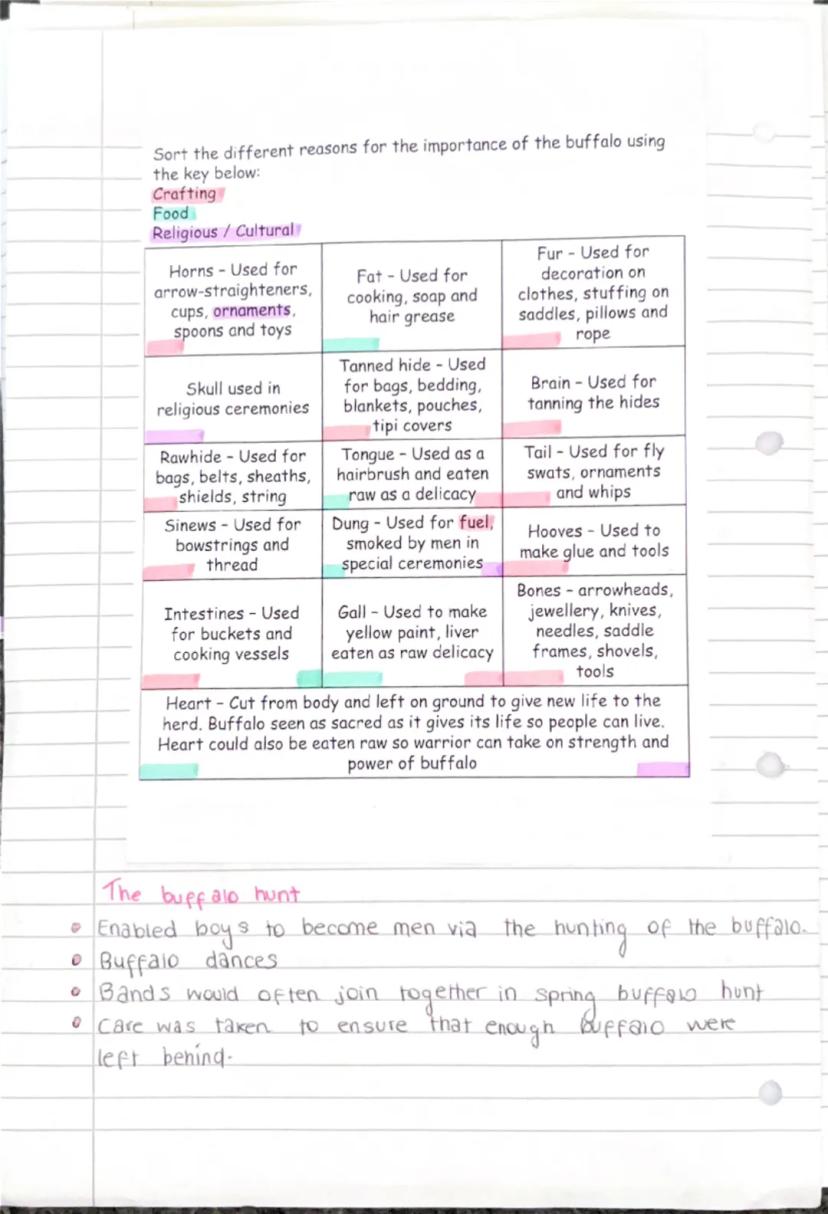 Sort the different reasons for the importance of the buffalo using
the key below:
Crafting
Food
Religious / Cultural
Horns - Used for
arrow-straighteners,
cups, ornaments,
spoons and toys
Fat - Used for
cooking, soap and
hair grease
Fur - Used for
decoration on
clothes, stuffing on
saddles, pillows and
rope
Skull used in
religious ceremonies
Tanned hide - Used
for bags, bedding,
blankets, pouches,
tipi covers
Brain - Used for
tanning the hides
Rawhide - Used for
bags, belts, sheaths,
shields, string
Tongue - Used as a
hairbrush and eaten
raw as a delicacy
Tail - Used for fly
swats, ornaments
and whips
Sinews - Used for
bowstrings and
thread
Dung - Used for fuel,
smoked by men in
special ceremonies
Hooves - Used to
make glue and tools
Intestines - Used
for buckets and
cooking vessels
Gall - Used to make
yellow paint, liver
eaten as raw delicacy
Bones - arrowheads,
jewellery, knives,
needles, saddle
frames, shovels,
tools
Heart - Cut from body and left on ground to give new life to the
herd. Buffalo seen as sacred as it gives its life so people can live.
Heart could also be eaten raw so warrior can take on strength and
power of buffalo
The buffalo hunt
• Enabled boys to become men via the hunting of the buffalo.
• Buffalo dances
• Bands would often join together in spring buffalo hunt
• Care was taken to ensure that enough buffalo were
left behind.